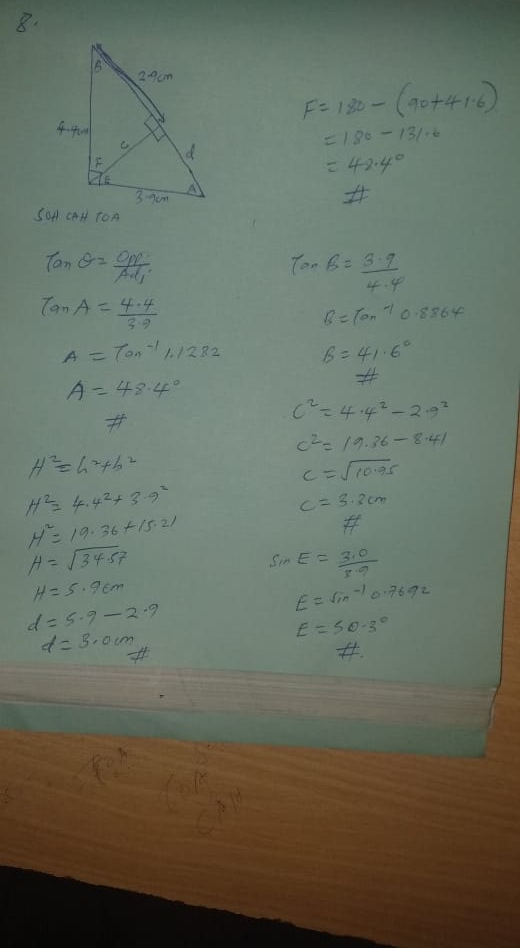 8.
B
2.9cm
4.4cm
c
d
F
E
A
3.9cm
SOH CAH TOA
Tan θ = Opp/Adj
Tan A = 4.4/3.9
A = Tan⁻¹ 1.1282
A = 48.4°
#
H² = h² + b²
H² = 4.4² + 3.9²
H² = 19.36 + 15.21
H = √34.57
H = 5.9cm
d = 5.9 - 2.9
d = 3.0cm
#
F = 180 - (90 + 41.6)
= 180 - 131.6
= 48.4°
#
Tan B = 3.9/4.4
B = Tan⁻¹ 0.8864
B = 41.6°
#
C² = 4.4² - 2.9²
C² = 19.36 - 8.41
C = √10.95
C = 3.3cm
#
Sin E = 3.0/3.9
E = Sin⁻¹ 0.7692
E = 50.3°
#.
CAH